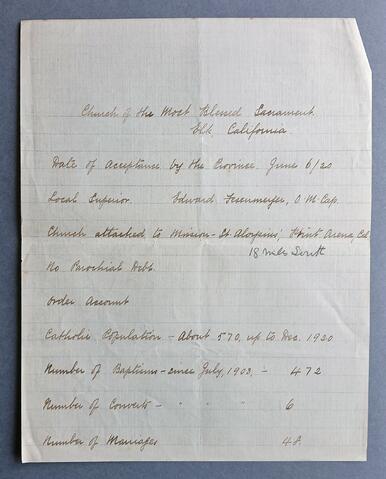 Church of the Most Blessed Sacrament.
Elk, California.
Date of Acceptance by the Province. June 6/20
Local Superior. Edward O.M.Cap.
Church attached to Mission - St. Aloysius, Point Arena, Cal.
18 miles South
No Parochial Debt.
Order Account
Catholic Population - About 570, up to Dec. 1920
Number of Baptisms - since July, 1903, - 472
Number of Converts - " " " 6
Number of Marriages 48